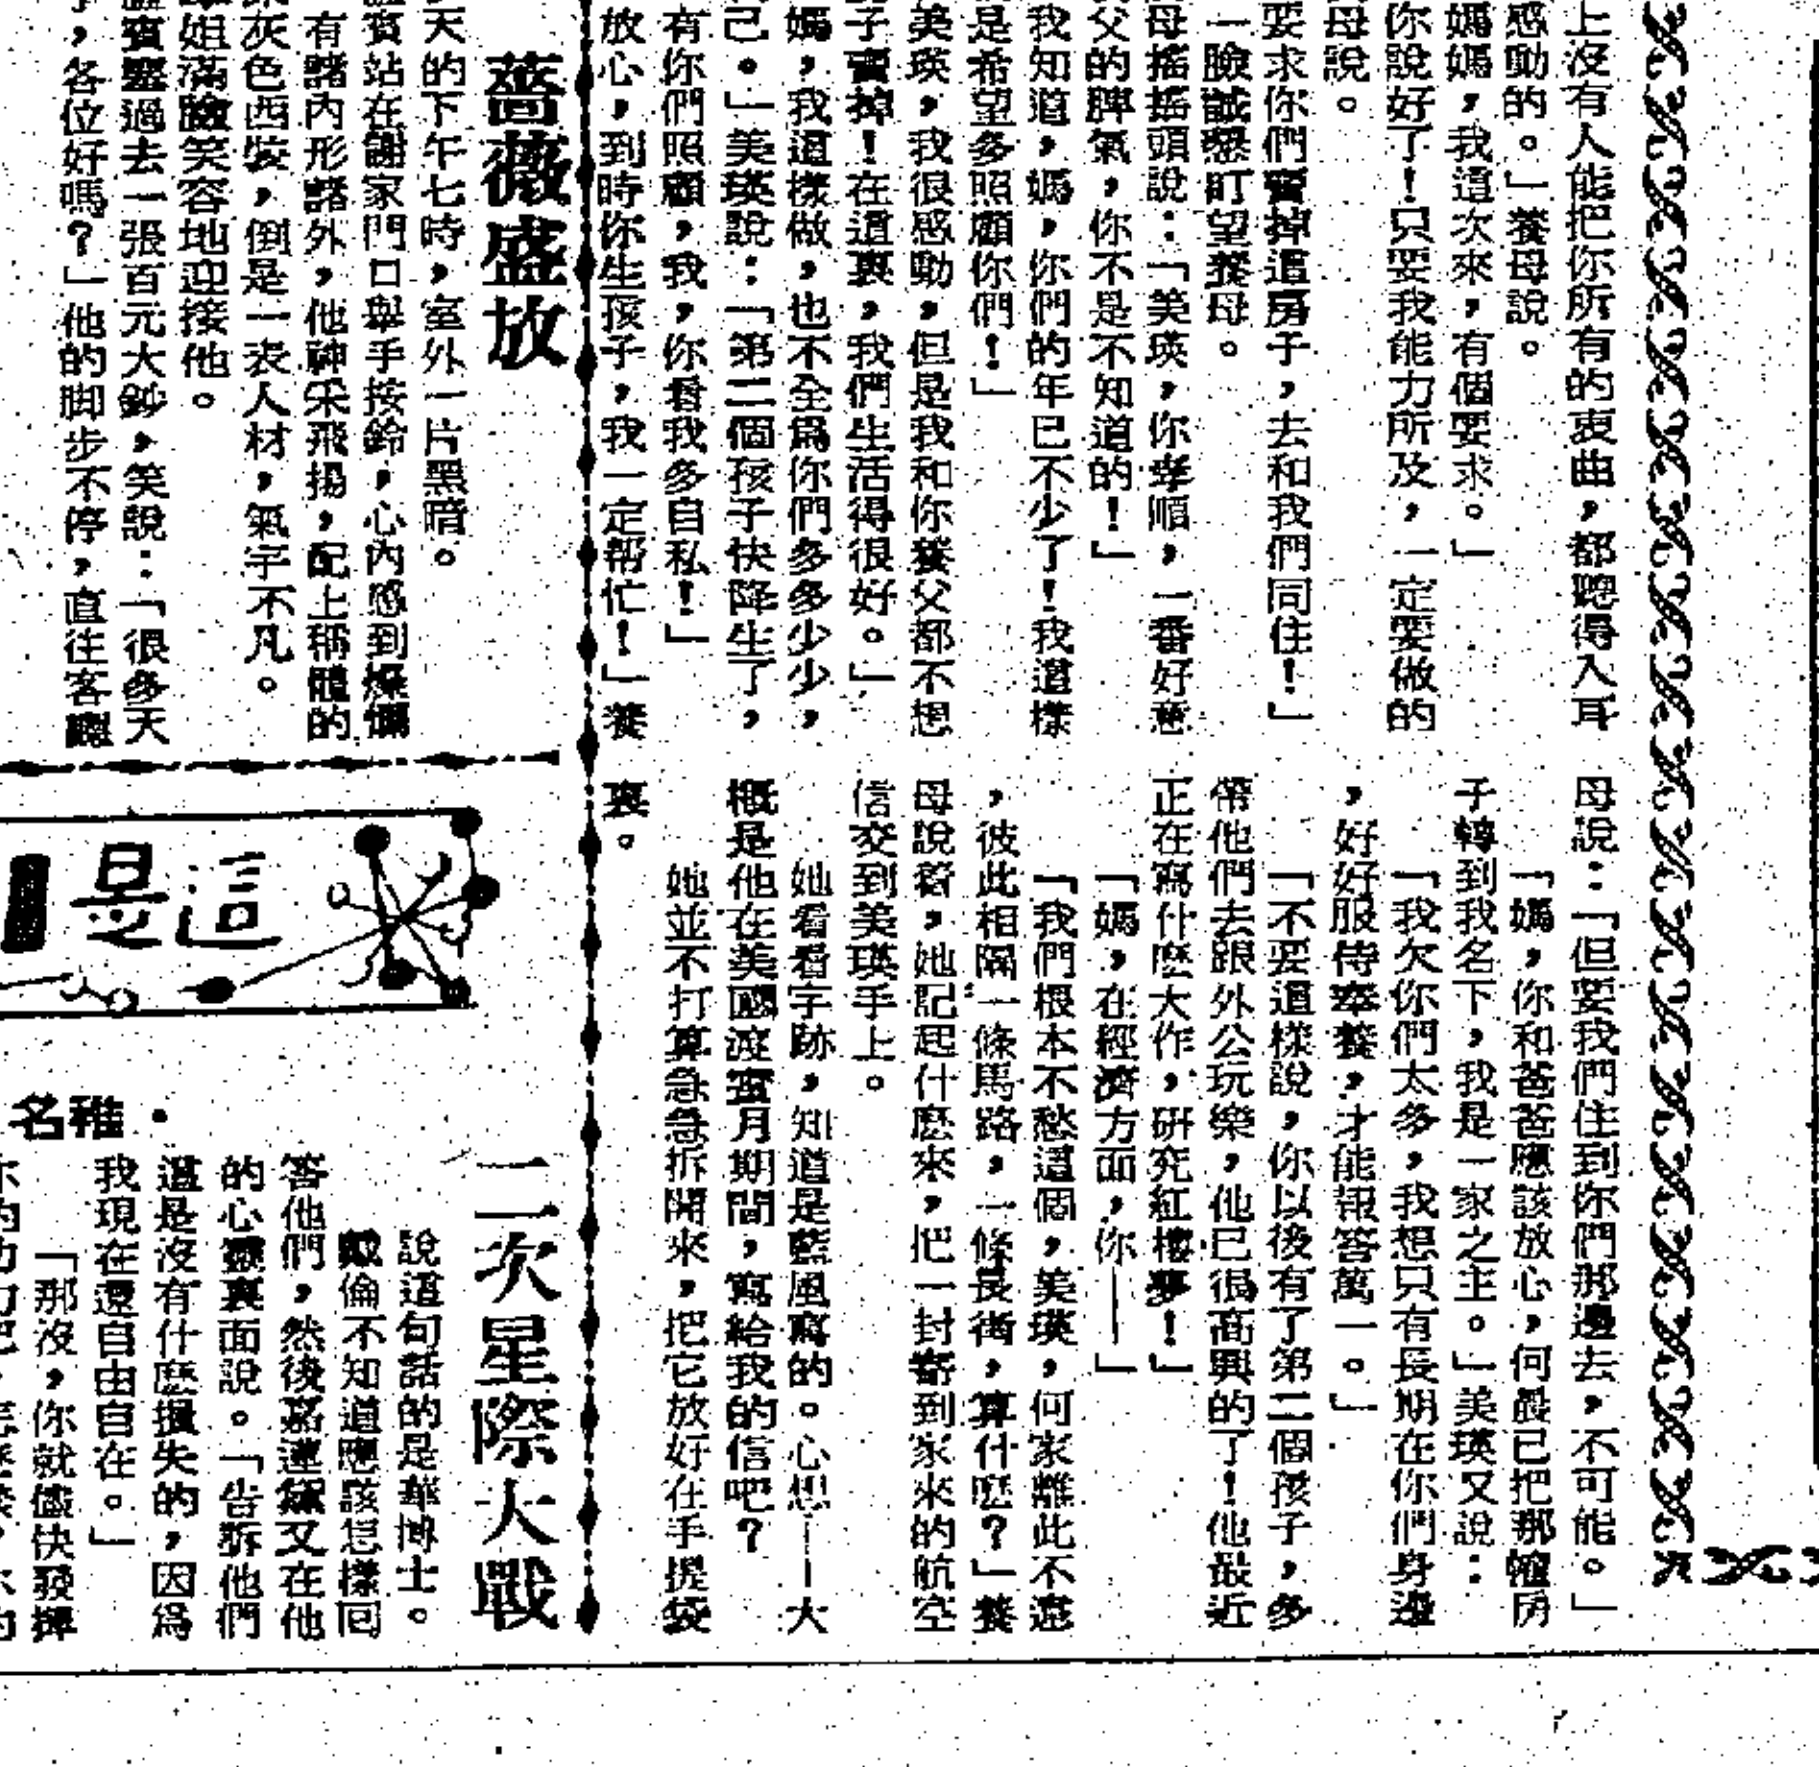 上沒有人能把你所有的衷曲，都聽得入耳
感動的。」養母說。
媽媽，我這次來，有個要求。」
你說好了！只要我能力所及，一定要做的
母說。
要求你們賣掉這房子，去和我們同住！」
一臉誠懇盯望養母。
母搖搖頭說：「美瑛，你孝順，一番好意
父的脾氣，你不是不知道的！」
我知道，媽，你們的年已不少了！我這樣
是希望多照顧你們！」
美瑛，我很感動，但是我和你養父都不想
子賣掉！在這裏，我們生活得很好。」
媽，我這樣做，也不全爲你們多多少少，
己。」美瑛說：「第二個孩子快降生了，
有你們照顧，我，你看我多自私！」
放心，到時你生孩子，我一定帮忙！」養
母說：「但要我們住到你們那邊去，不可能。」
「媽，你和爸爸應該放心，何晨已把那幢房
子轉到我名下，我是一家之主。」美瑛又說：
「我欠你們太多，我想只有長期在你們身邊
，好好服侍奉養，才能報答萬一。」
「不要這樣說，你以後有了第二個孩子，多
帶他們去跟外公玩樂，他已很高興的了！他最近
正在寫什麼大作，研究紅樓夢！」
「媽，在經濟方面，你——」
「我們根本不愁這個，美瑛，何家離此不遠
，彼此相隔一條馬路，一條長街，算什麼？」養
母說着，她記起什麼來，把一封寄到家來的航空
信交到美瑛手上。
她看看字跡，知道是藍風寫的。心想——大
概是他在美國渡蜜月期間，寫給我的信吧？
她並不打算急急拆開來，把它放好在手提袋
裏。
薔薇盛放
天的下午七時，室外一片黑暗。
賓站在謝家門口舉手按鈴，心內感到燦爛
有諸內形諸外，他神采飛揚，配上稱體的
灰色西裝，倒是一表人材，氣宇不凡。
姐滿臉笑容地迎接他。
賓塞過去一張百元大鈔，笑說：「很多天
，各位好嗎？」他的脚步不停，直往客廳
這是
・稚名
二次星際大戰
說這句話的是華博士。
戴倫不知道應該怎樣回
答他們，然後嘉蓮黛又在他
的心靈裏面說。「告訴他們
這是沒有什麼損失的，因爲
我現在還自由自在。」
「那沒，你就儘快發揮